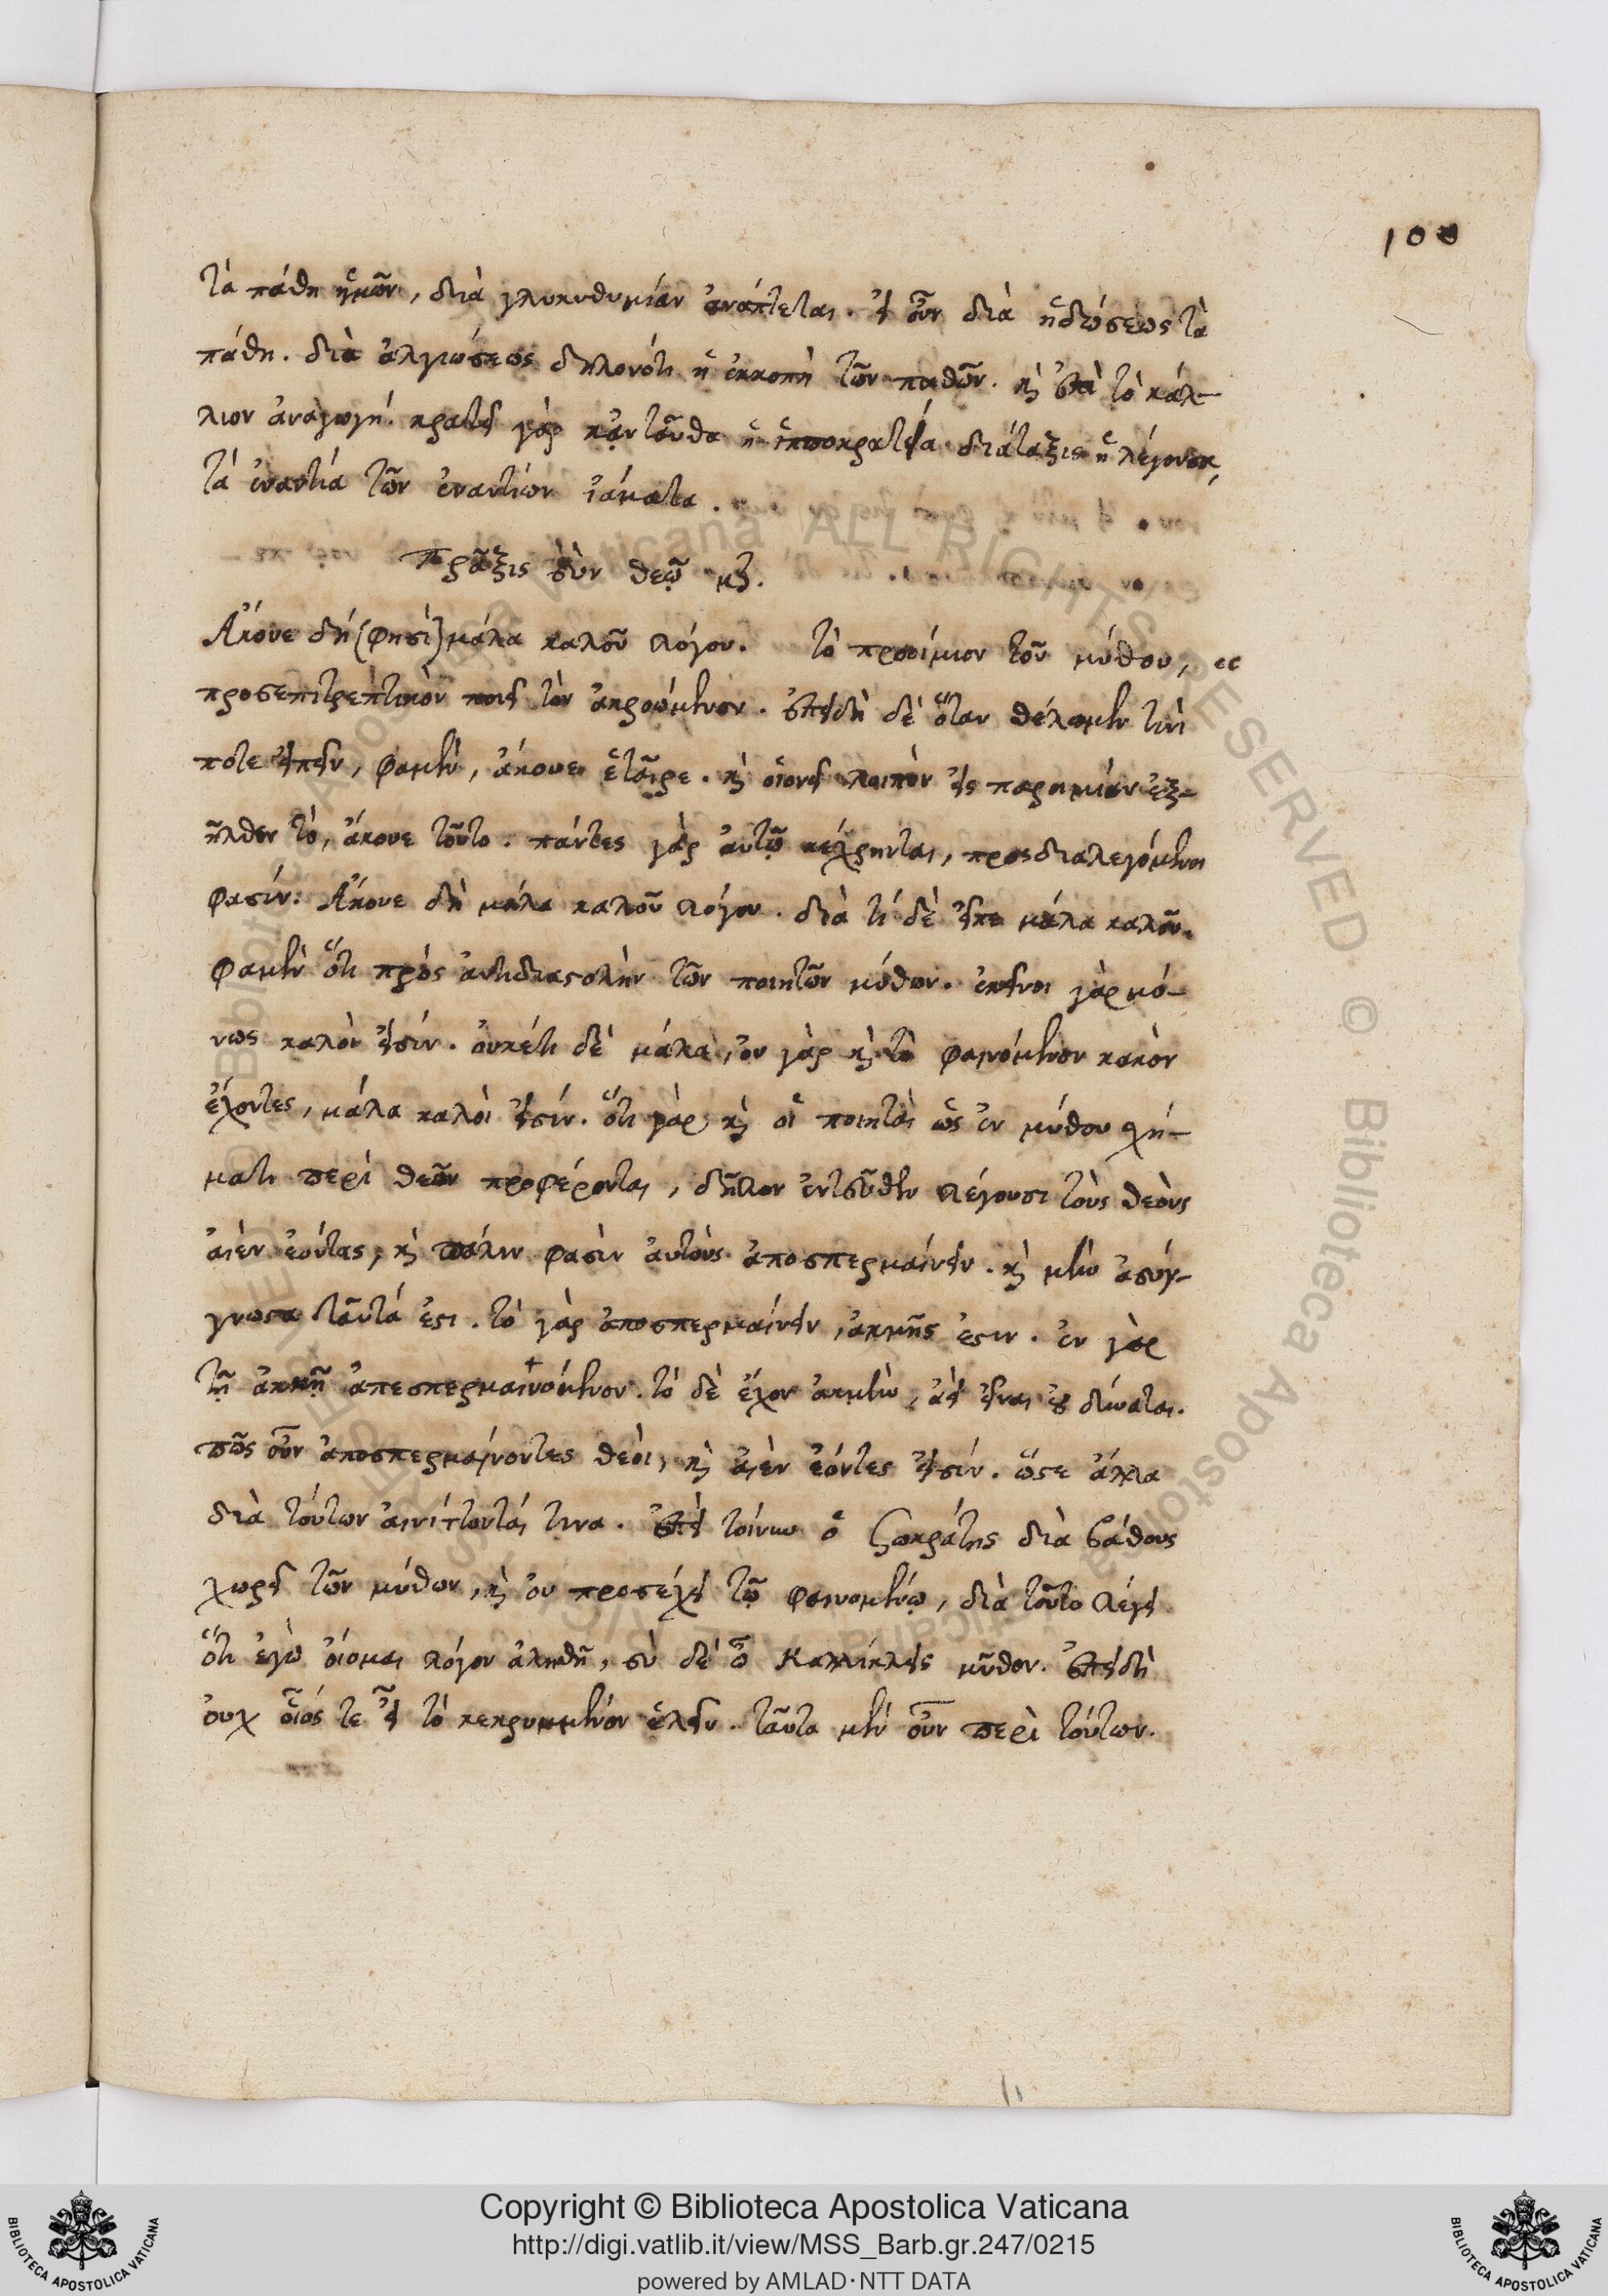 100
τὰ πάθη ἡμῶν, διὰ γλυκυθυμίαν ἀνάπτεται. εἰ οὖν διὰ ἡδύσεως τὰ
πάθη. διὰ ἀλγύσεως δηλονότι ἡ ἐκκοπὴ τῶν παθῶν. καὶ ἐπὶ τὸ κάλ-
λιον ἀναγωγή. κρατεῖ γὰρ κἀνταῦθα ἡ ἱπποκρατεία διάταξις ἡ λέγουσα,
τὰ ἐναντία τῶν ἐναντίων ἰάματα.
Πρᾶξις σὺν θεῷ μζ.
Ἄκουε δή (φησὶ) μάλα καλοῦ λόγου. τὸ προοίμιον τοῦ μύθου,
προσεπιτρεπτικὸν ποιεῖ τὸν ἀκροώμενον. ἐπειδὴ δὲ ὅταν θέλωμεν τινὶ
ποτε εἰπεῖν, φαμὲν, ἄκουε ἑταῖρε. καὶ οἱονεὶ λοιπὸν εἰς παροιμίαν ἐξ-
ῆλθεν τὸ, ἄκουε τοῦτο. πάντες γὰρ αὐτῷ κέχρηνται, προσδιαλεγόμενοι
φασίν: Ἄκουε δὴ μάλα καλοῦ λόγου. διὰ τί δὲ εἶπε μάλα καλοῦ.
φαμὲν ὅτι πρὸς ἀντιδιαστολὴν τῶν ποιητῶν μύθων. ἐκεῖνοι γὰρ μό-
νως καλοὶ εἰσίν. οὐκέτι δὲ μάλα, οὐ γὰρ καὶ τὸ φαινόμενον κακὸν
ἔχοντες, μάλα καλοὶ εἰσίν. ὅτι γὰρ καὶ οἱ ποιηταὶ ὡς ἐν μύθου σχή-
ματι περὶ θεῶν προφέρονται, δῆλον ἐντεῦθεν λέγουσι τοὺς θεοὺς
αἰὲν ἐόντας, καὶ πάλιν φασὶν αὐτοὺς ἀποσπερμαίνειν. καὶ μὴν ἀσύγ-
γνωστα ταῦτά ἐστι. τὸ γὰρ ἀποσπερμαίνειν, ἀκμῆς ἐστιν. ἐν γὰρ
τῇ ἀκμῇ ἀπεσπερμαινόμενον. τὸ δὲ ἔχον ἀκμὴν, ἀεὶ εἶναι οὐ δύναται.
πῶς οὖν ἀποσπερμαίνοντες θεοὶ, καὶ αἰὲν ἐόντες εἰσίν. ὥστε ἄλλα
διὰ τούτων αἰνίττονταί τινα. ἐπεὶ τοίνυν ὁ Σωκράτης διὰ βάθους
χωρεῖ τῶν μύθων, καὶ οὐ προσέχει τῷ φαινομένῳ, διὰ τοῦτο λέγει
ὅτι ἐγὼ οἴομαι λόγον ἀληθῆ, σὺ δὲ ὦ Καλλίκλεις μῦθον. ἐπειδὴ
οὐχ οἷός τε εἶ τὸ κεκρυμμένον ἑλεῖν. ταῦτα μὲν οὖν περὶ τούτων.
Copyright © Biblioteca Apostolica Vaticana
http://digi.vatlib.it/view/MSS_Barb.gr.247/0215
powered by AMLAD·NTT DATA